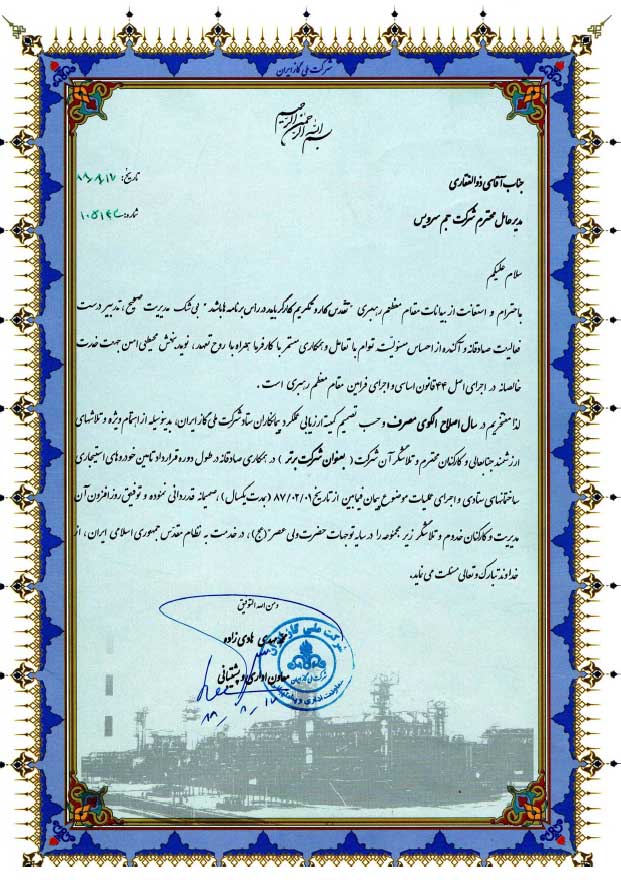 شرکت ملی گاز ایران
بسم الله الرحمن الرحیم
جناب آقای ذوالفقاری
تاریخ:
مدیرعامل محترم شرکت جم سرویس
شماره:
سلام علیکم
بااحترام و استعانت از بیانات مقام معظم رهبری " تقدس کار و تکریم کارگر باید در راس برنامه ها باشد " بی شک مدیریت صحیح، تدبیر درست
فعالیت صادقانه و آکنده از احساس مسئولیت توام با تعامل و همکاری مستمر با کارفرما همراه با روح تعهد، نوید بخش محیطی امن جهت خدمت
خالصانه در اجرای اصل ۴۴ قانون اساسی و اجرای فرامین مقام معظم رهبری است .
لذا مفتخریم در سال اصلاح الگوی مصرف و حسب تصمیم کمیته ارزیابی عملکرد پیمانکاران ستاد شرکت ملی گاز ایران، بدینوسیله از اهتمام ویژه و تلاشهای
ارزشمند جنابعالی و کارکنان محترم و تلاشگر آن شرکت ( بعنوان شرکت برتر ) در همکاری صادقانه در طول دوره قرارداد تامین خودروهای استیجاری
ساختمانهای ستادی و اجرای عملیات موضوع پیمان فیمابین از تاریخ ۸۷/۰۲/۰۱ (بمدت یکسال) ،صمیمانه قدردانی نموده و توفیق روزافزون آن
مدیریت و کارکنان خدوم و تلاشگر زیر مجموعه را در سایه توجهات حضرت ولی عصر (عج) ، در خدمت به نظام مقدس جمهوری اسلامی ایران ، از
خداوند تبارک و تعالی مسئلت می نماید.
ومن الله التوفیق
هادی زاده
معاون اداری و پشتیبانی
شرکت ملی گاز ایران
شرکت ملی گاز ایران
معاونت اداری و پشتیبانی